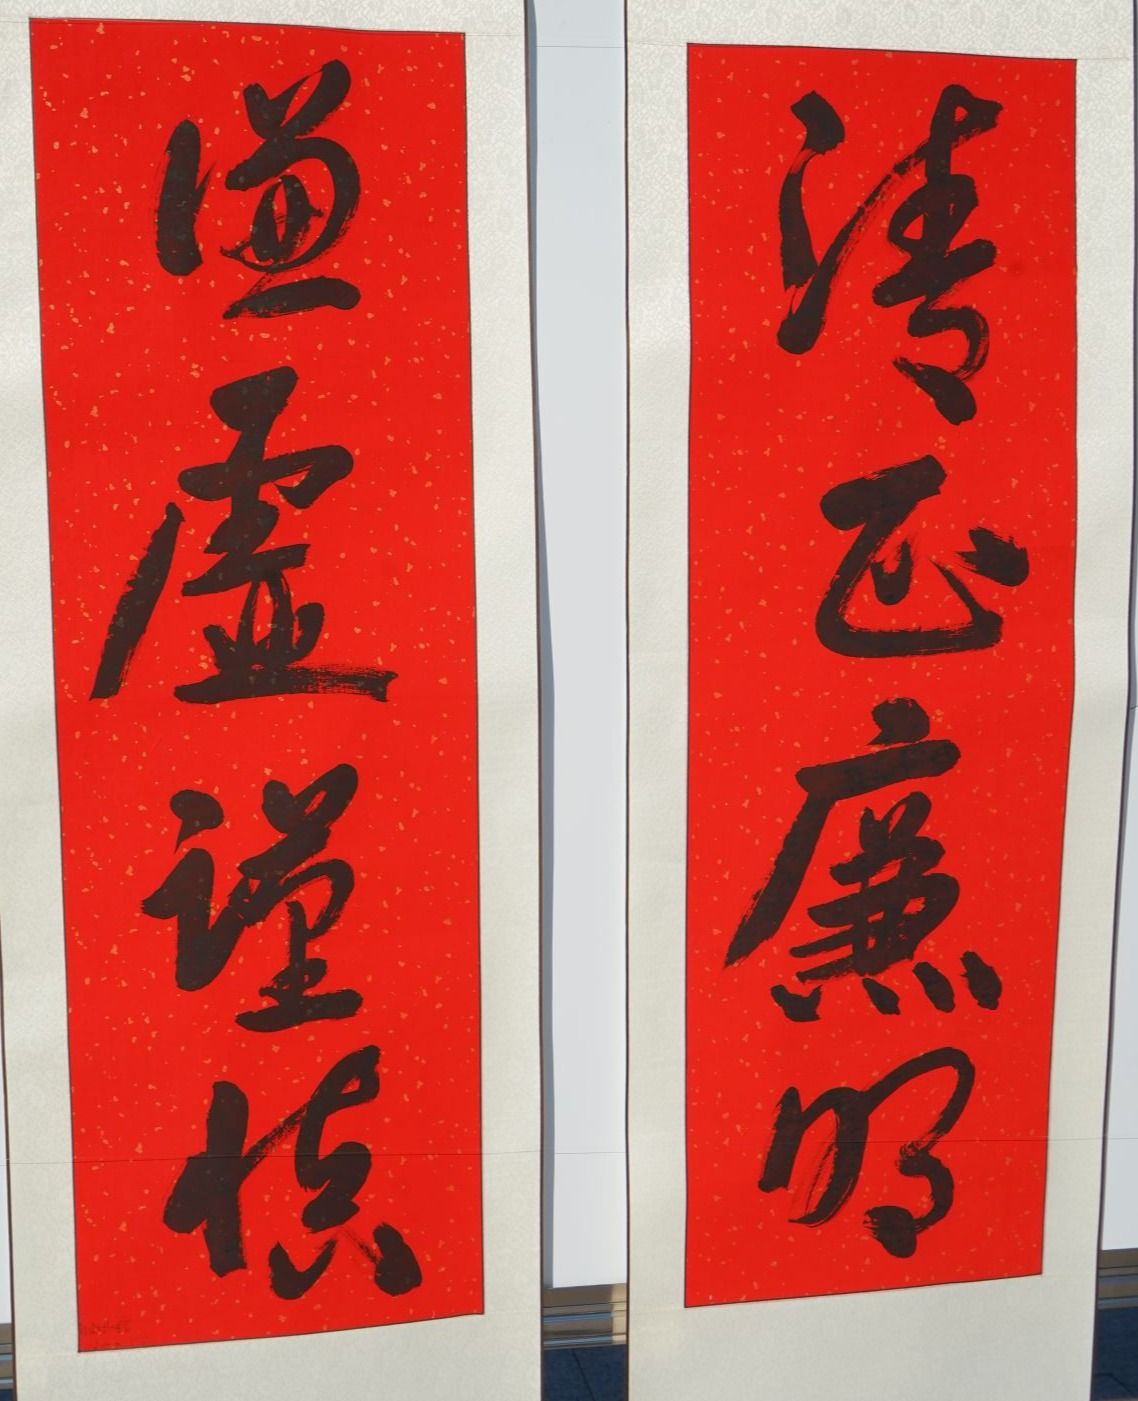 清正廉明
谦虚谨慎